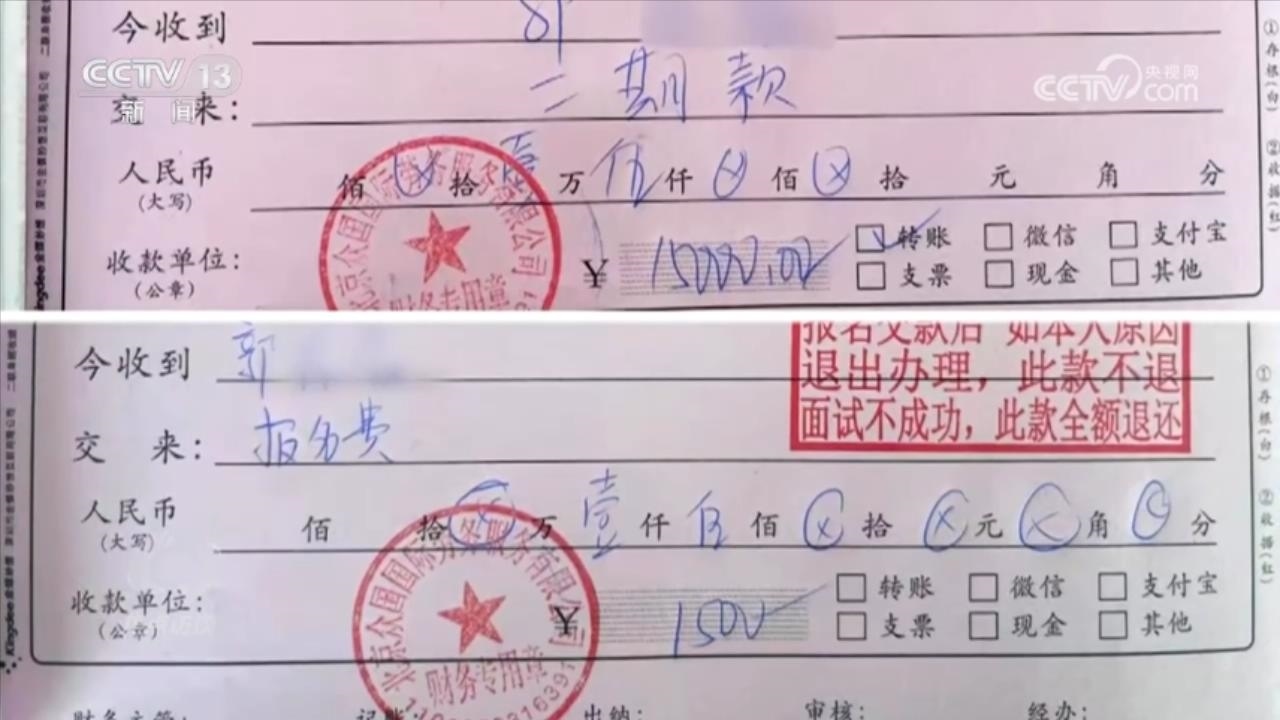 CCTV 13
新闻
央视网
CCTV.com
今收到 郭
交 来: 二期款
人民币
(大写)
佰 ⊗ 拾 壹 万 伍 仟 ⊗ 佰 ⊗ 拾 元 角 分
收款单位:
(公章)
¥ 15000.00
☑ 转账 □ 微信 □ 支付宝
□ 支票 □ 现金 □ 其他
北京众国国际劳务服务有限公司
财务专用章
①存根(白)
②收据(红)
今收到 郭
交 来: 报名费
报名交款后 如本人原因
退出办理，此款不退
面试不成功，此款全额退还
人民币
(大写)
佰 拾 ⊗ 万 壹 仟 伍 佰 ⊗ 拾 ⊗ 元 ⊗ 角 ⊗ 分
收款单位:
(公章)
¥ 1500
□ 转账 □ 微信 □ 支付宝
□ 支票 □ 现金 □ 其他
北京众国国际劳务服务有限公司
财务专用章
①存根(白)
②收据(红)
财务主管: 记账: 出纳: 审核: 经办: